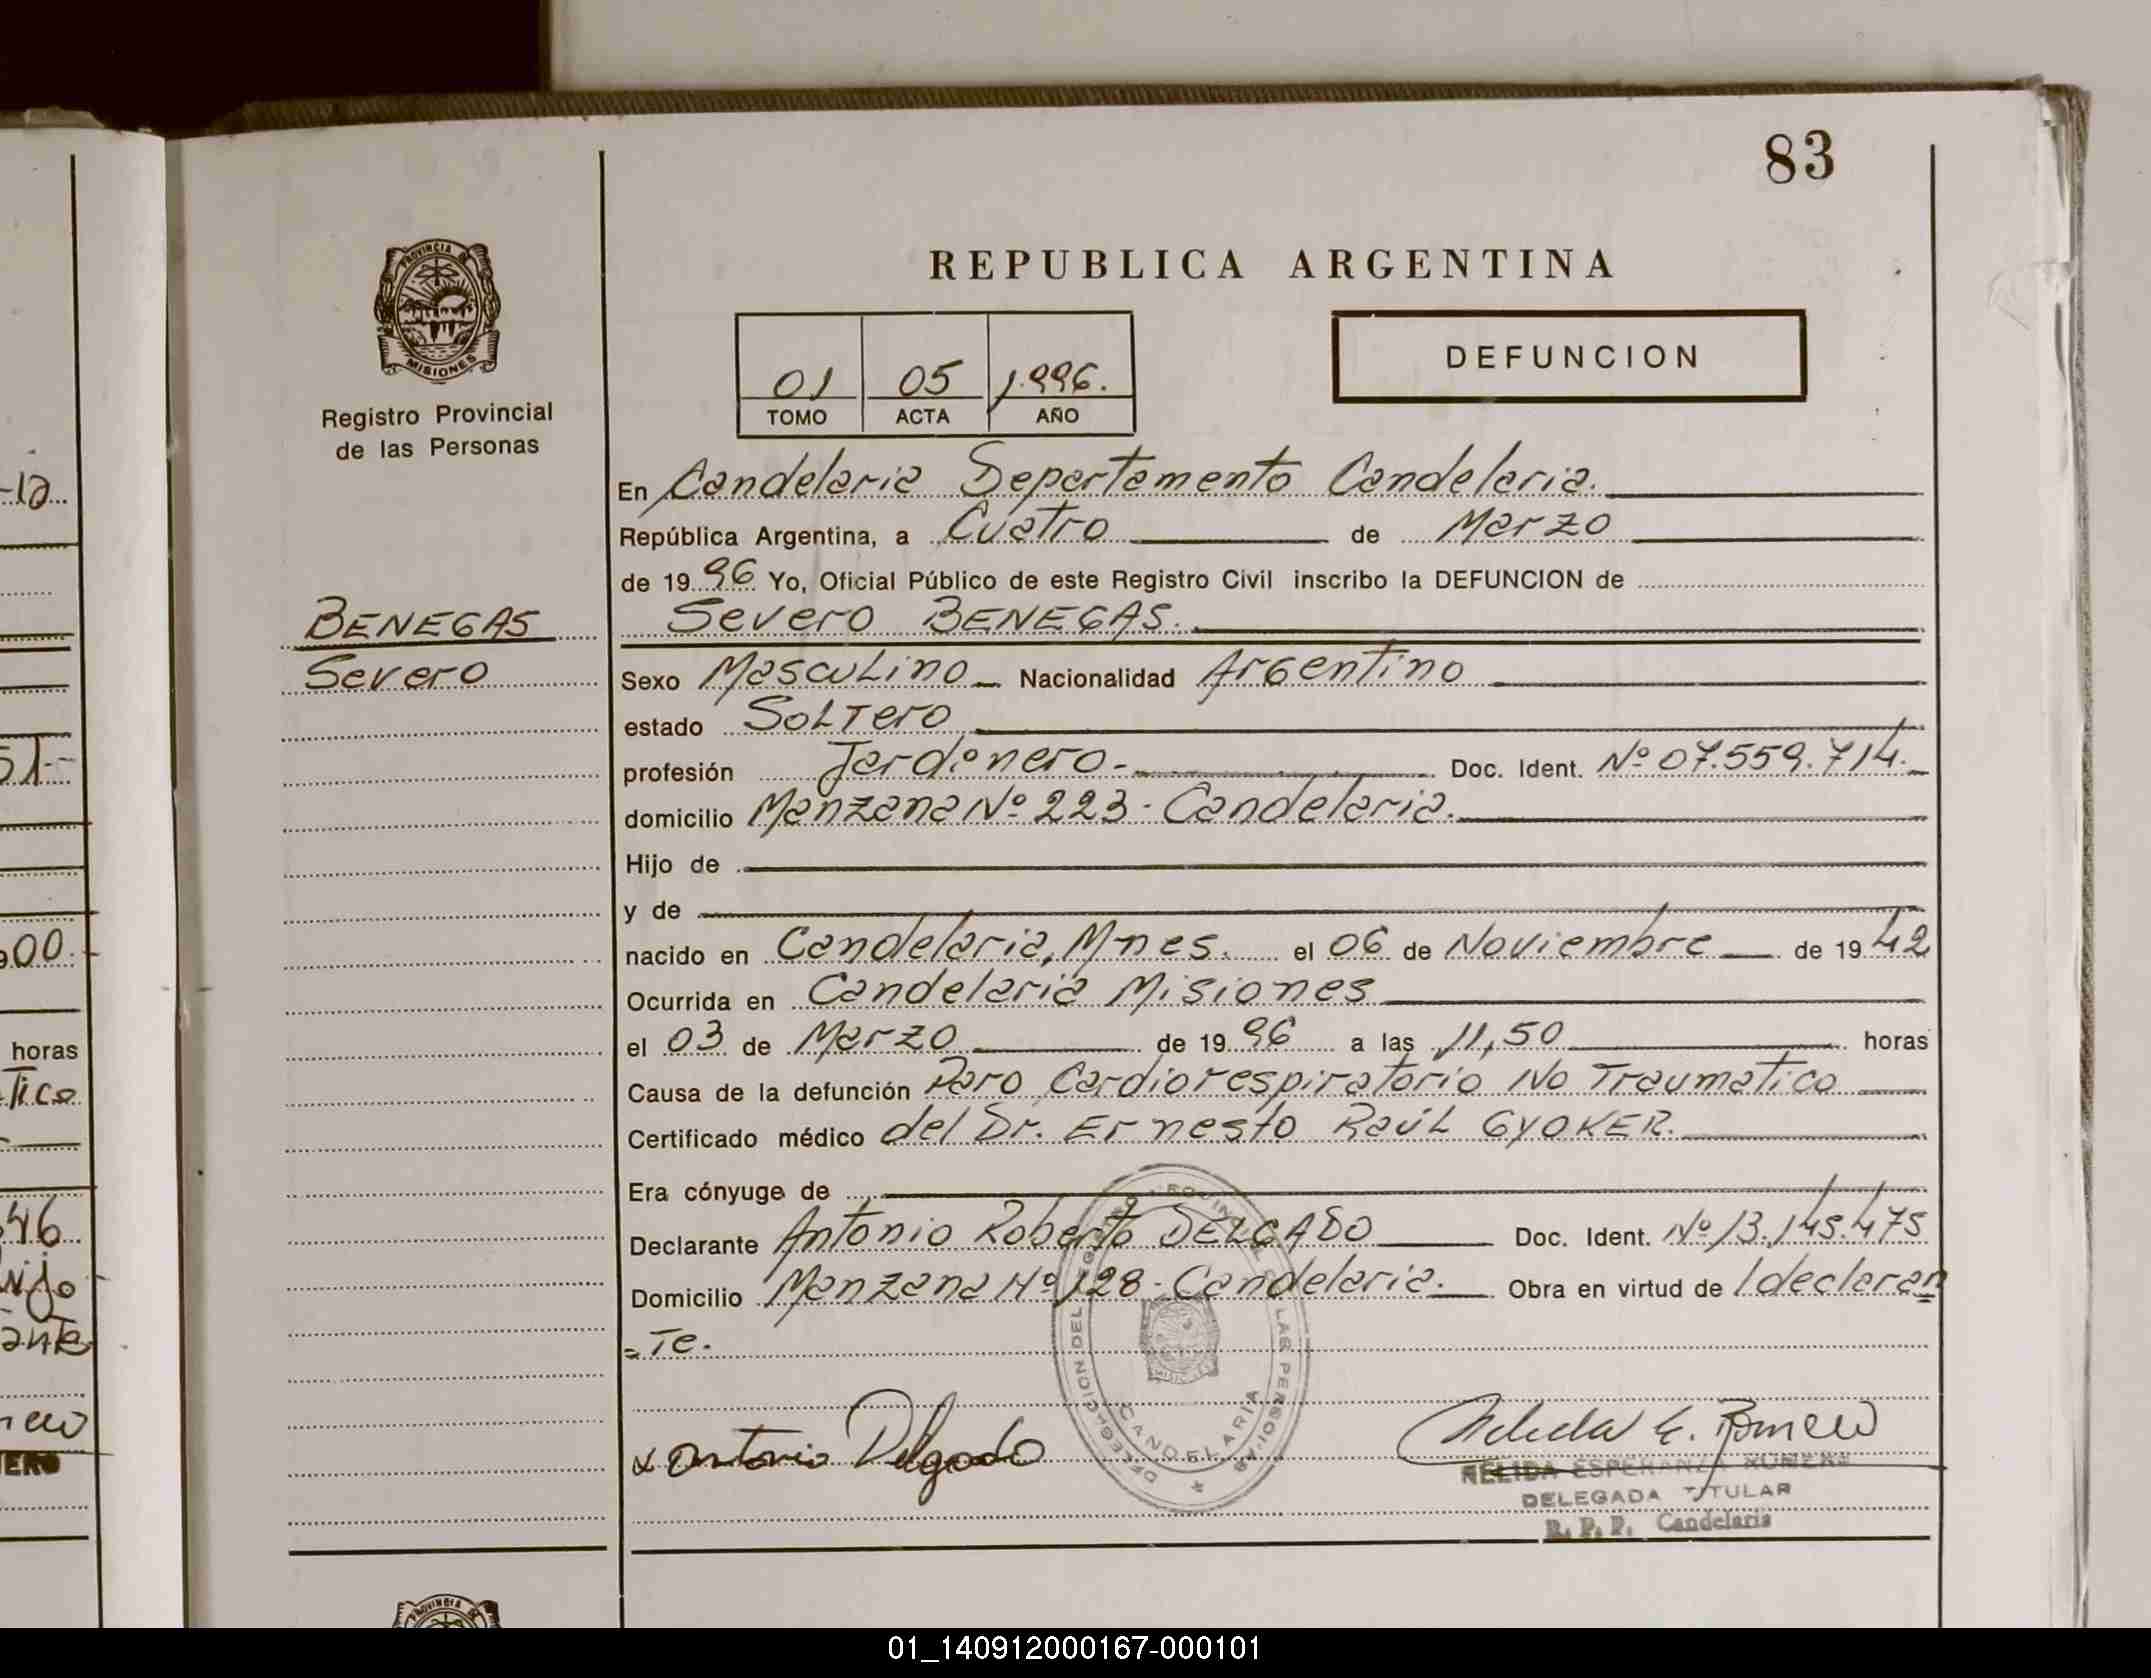 83
PROVINCIA DE
MISIONES
Registro Provincial
de las Personas
REPUBLICA ARGENTINA
01 05 1.996.
TOMO ACTA AÑO
DEFUNCION
En Candelaria Departamento Candelaria.
República Argentina, a Cuatro de Marzo
de 1996 Yo, Oficial Público de este Registro Civil inscribo la DEFUNCION de
BENEGAS
Severo
Severo BENEGAS.
Sexo Masculino Nacionalidad Argentino
estado Soltero
profesión Jardinero.- Doc. Ident. Nº 07.559.714.
domicilio Manzana Nº 223 - Candelaria.
Hijo de
y de
nacido en Candelaria, Mnes. el 06 de Noviembre de 1942
Ocurrida en Candelaria Misiones
el 03 de Marzo de 1996 a las 11,50 horas
Causa de la defunción Paro Cardiorespiratorio No Traumatico
Certificado médico del Dr. Ernesto Raúl GYOKER.
Era cónyuge de
Declarante Antonio Roberto DELGADO Doc. Ident. Nº 13.145.475
Domicilio Manzana Nº 128 - Candelaria. Obra en virtud de /declaran
=Te.
x Antonio Delgado
Nelida E. Romero
NELIDA ESPERANZA ROMERO
DELEGADA TITULAR
R. P. P. Candelaria
CANDELARIA
-la
51.-
00.-
horas
tico
46
Hijo
ante
ERO
PROVINCIA DE
01_140912000167-000101